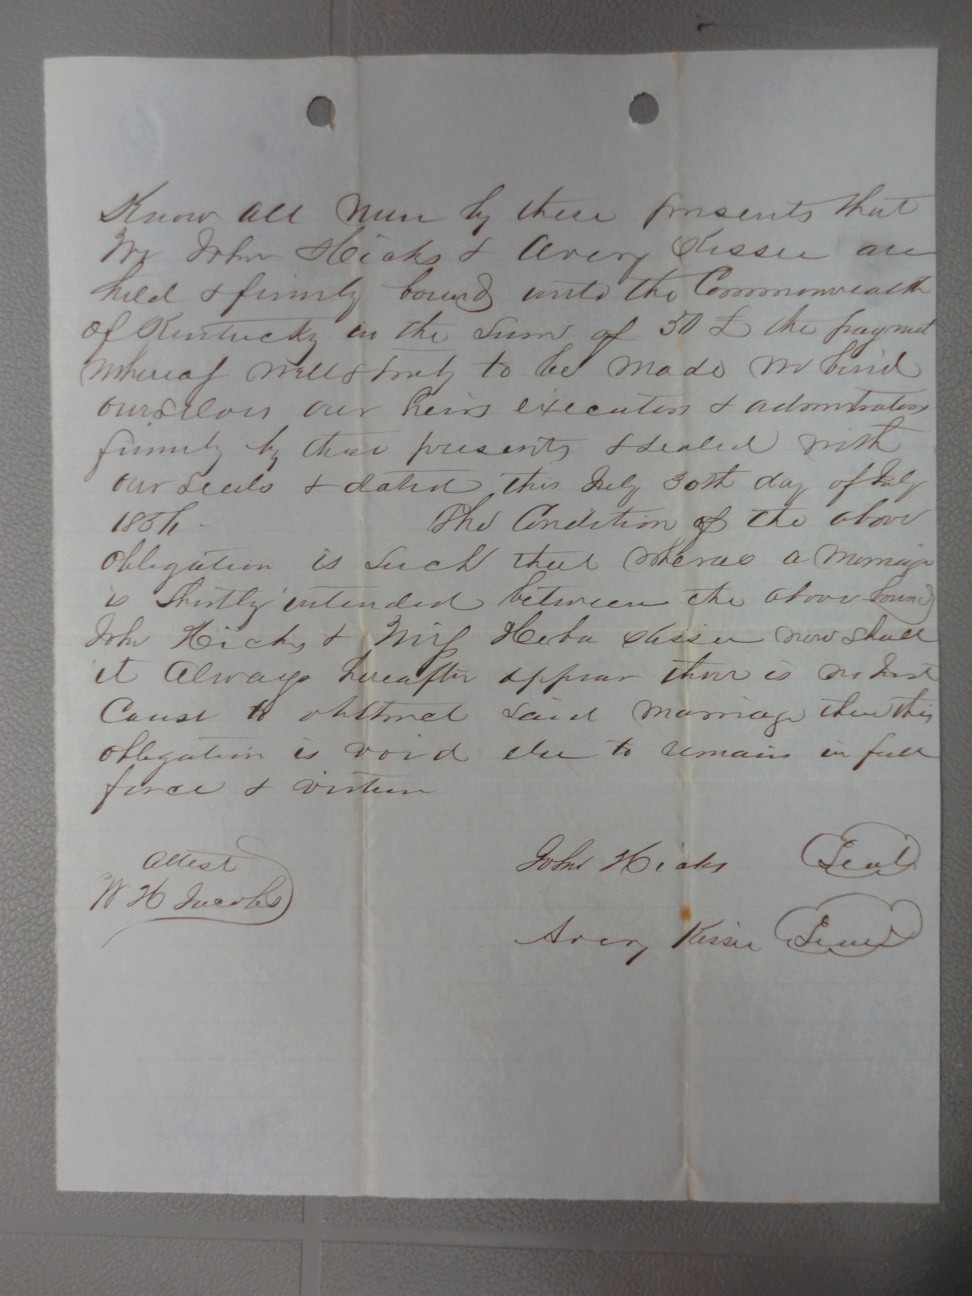 Know all Men by these presents that
We John Hicks & Avery Kissee are
held & firmly bound unto the Commonwealth
of Kentucky in the Sum of 50 £ the payment
whereof well & truly to be made we bind
ourselves our heirs executors & administrators
firmly by these presents & sealed with
our seals & dated this July 30th day of July
The Condition of the above
obligation is such that whereas a Marriage
is Shortly intended between the above bound
John Hicks & Kissee now shall
it Always hereafter appear there is no Just
Cause to obstruct said Marriage then this
obligation is void else to remain in full
force & virtue
attest
W H Jacobs
John Hicks Seal
Avery Kissee Seal